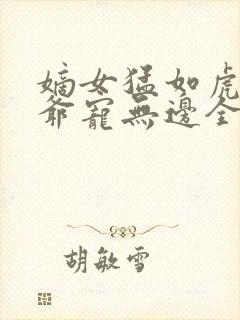 嫡女猛如虎
爺寵無邊全
胡敏雪